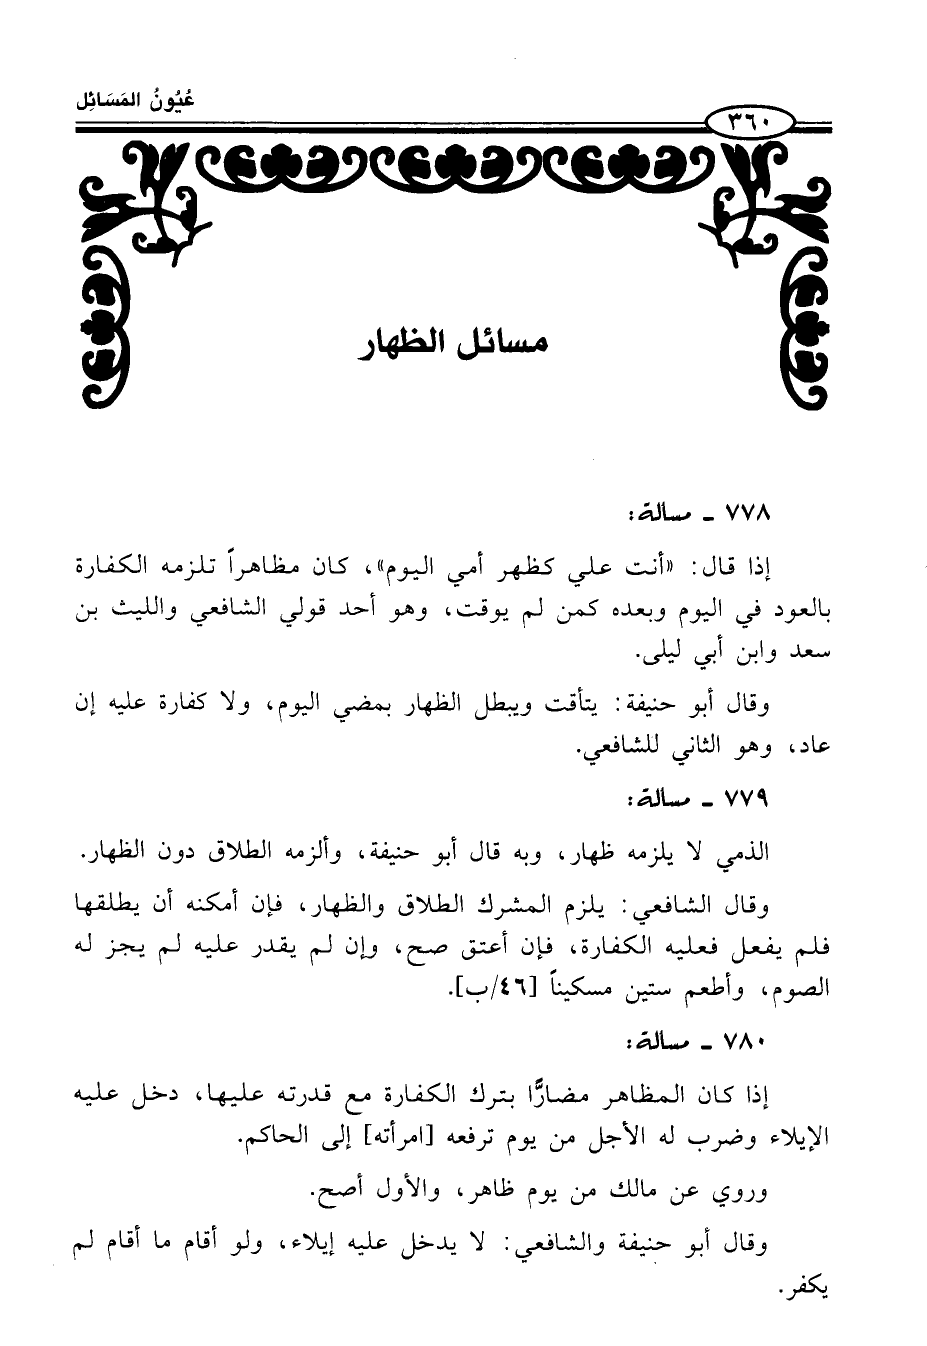 عُيُونُ المَسَائِل
٣٦٠
مسائل الظهار
٧٧٨ ـ مسالة:
إذا قال: «أنت علي كظهر أمي اليوم»، كان مظاهراً تلزمه الكفارة
بالعود في اليوم وبعده كمن لم يوقت، وهو أحد قولي الشافعي والليث بن
سعد وابن أبي ليلى.
وقال أبو حنيفة: يتأقت ويبطل الظهار بمضي اليوم، ولا كفارة عليه إن
عاد، وهو الثاني للشافعي.
٧٧٩ ـ مسالة:
الذمي لا يلزمه ظهار، وبه قال أبو حنيفة، وألزمه الطلاق دون الظهار.
وقال الشافعي: يلزم المشرك الطلاق والظهار، فإن أمكنه أن يطلقها
فلم يفعل فعليه الكفارة، فإن أعتق صح، وإن لم يقدر عليه لم يجز له
الصوم، وأطعم ستين مسكيناً [٤٦/ب].
٧٨٠ ـ مسالة:
إذا كان المظاهر مضارًّا بترك الكفارة مع قدرته عليها، دخل عليه
الإيلاء وضرب له الأجل من يوم ترفعه [امرأته] إلى الحاكم.
وروي عن مالك من يوم ظاهر، والأول أصح.
وقال أبو حنيفة والشافعي: لا يدخل عليه إيلاء، ولو أقام ما أقام لم
يكفر.